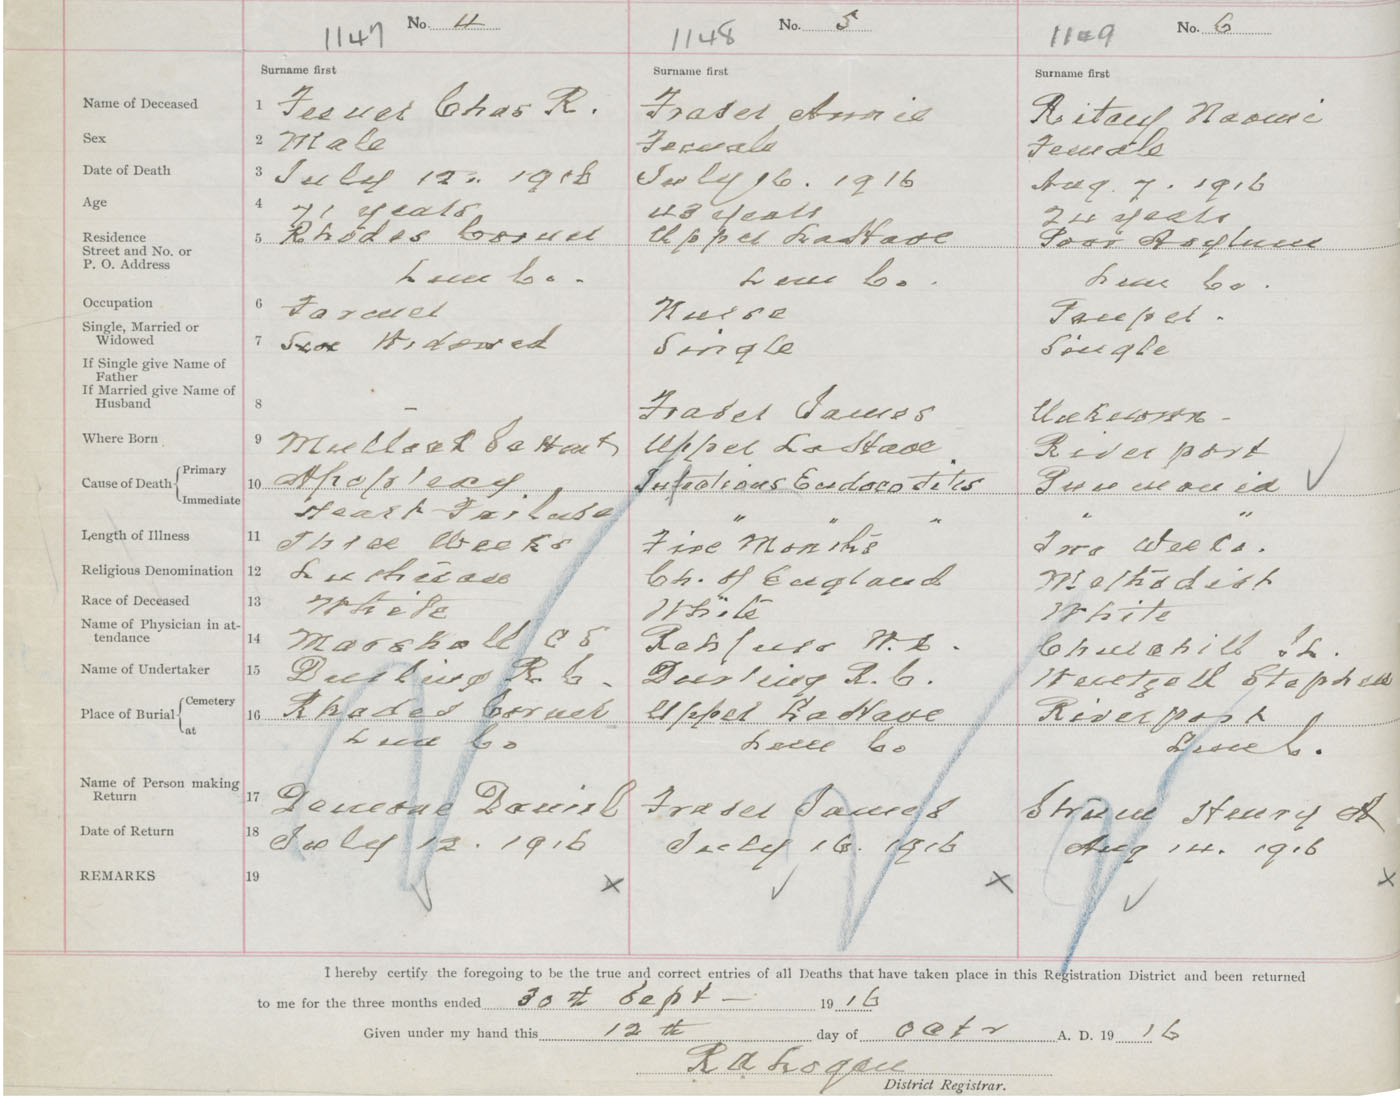 1147 No. 4 1148 No. 5 1149 No. 6
Surname first Surname first Surname first
Name of Deceased 1 Feener Chas R. Fraser Annie Ritcey Naomi
Sex 2 Male Female Female
Date of Death 3 July 12. 1916 July 16. 1916 Aug. 7. 1916
Age 4 71 years 43 years 74 years
Residence 5 Rhodes Corner Upper LaHave Poor Asylum
Street and No. or
P. O. Address Lun Co. Lun Co. Lun Co.
Occupation 6 Farmer Nurse Pauper.
Single, Married or
Widowed 7 Widowed Single Single
If Single give Name of
Father
If Married give Name of
Husband 8 - Fraser James Unknown -
Where Born 9 Upper LaHave Riverport
Cause of Death Primary 10 Apoplexy Infectious Endocotitis Pnumonia
Immediate Heart Failure " " " "
Length of Illness 11 Three Weeks Five Months Two Weeks.
Religious Denomination 12 Lutheran Ch. of England Methodist
Race of Deceased 13 White White White
Name of Physician in at-
tendance 14 Marshall C S Rehfuss W. N. Churchill J L.
Name of Undertaker 15 Durling R. C. Durling R. C. Wentzell Stephen
Place of Burial Cemetery 16 Rhodes Corner Upper LaHave Riverport
at Lun Co Lun Co Lun C.
Name of Person making
Return 17 Demone Daniel Fraser James Strum Henry A
Date of Return 18 July 12. 1916 July 16. 1916 Aug 14. 1916
REMARKS 19 x x x
I hereby certify the foregoing to be the true and correct entries of all Deaths that have taken place in this Registration District and been returned
to me for the three months ended 30th Sept - 19 16
Given under my hand this 12th day of Octr A. D. 19 16
R A Logan
District Registrar.